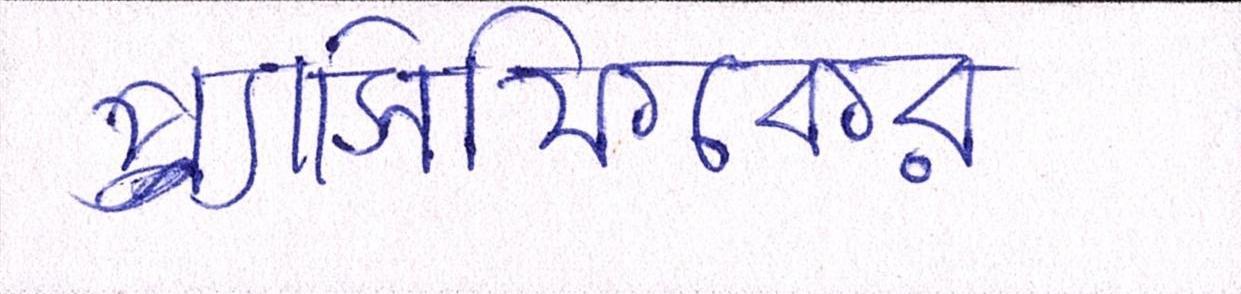 প্যাসিফিকের